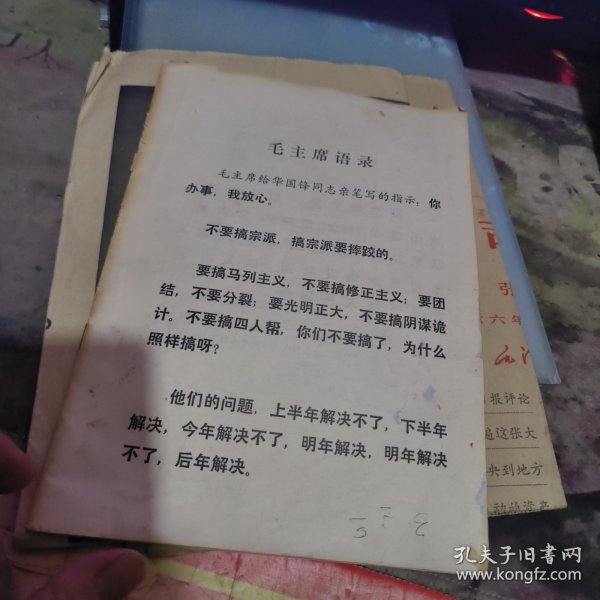 毛主席语录
毛主席给华国锋同志亲笔写的指示：你
办事，我放心。
不要搞宗派，搞宗派要摔跤的。
要搞马列主义，不要搞修正主义；要团
结，不要分裂；要光明正大，不要搞阴谋诡
计。不要搞四人帮，你们不要搞了，为什么
照样搞呀？
他们的问题，上半年解决不了，下半年
解决，今年解决不了，明年解决，明年解决
不了，后年解决。
张
六年
报评论
这张大
央到地方
孔夫子旧书网
www.kongfz.com